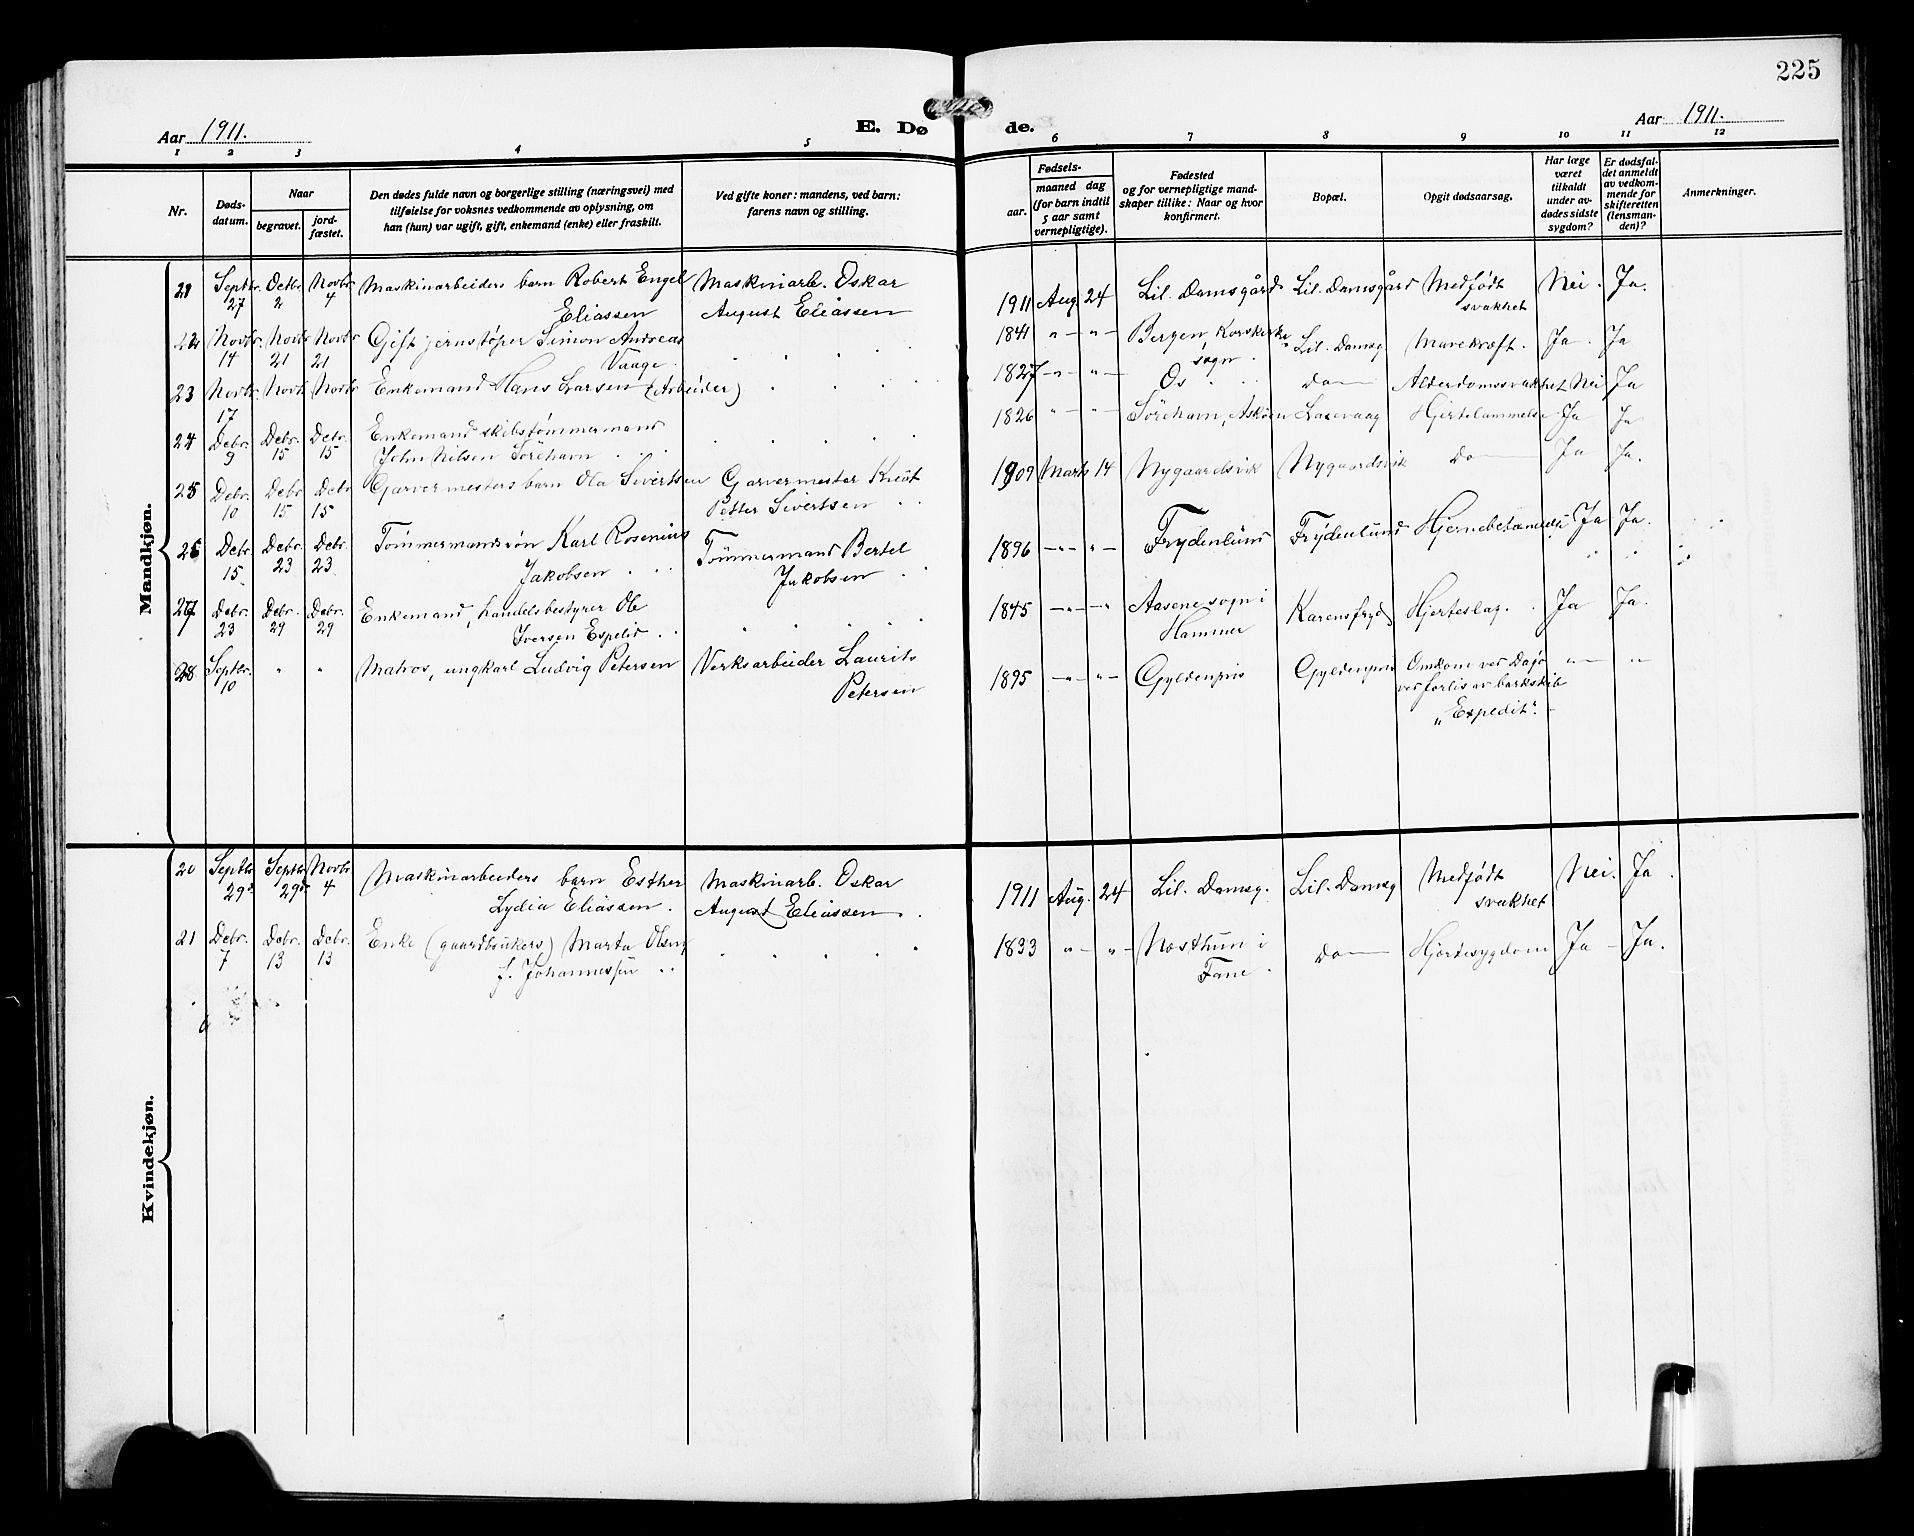 225
Aar 1911. E. Døde. Aar 1911.
1 2 3 4 5 6 7 8 9 10 11 12
Nr.
Døds-
datum.
Naar
begravet.
jord-
fæstet.
Den dødes fulde navn og borgerlige stilling (næringsvei) med
tilføielse for voksnes vedkommende av oplysning, om
han (hun) var ugift, gift, enkemand (enke) eller fraskilt.
Ved gifte koner: mandens, ved barn:
farens navn og stilling.
Fødsels-
aar.
maaned dag
(for barn indtil
5 aar samt
vernepligtige).
Fødested
og for vernepligtige mand-
skaper tillike: Naar og hvor
konfirmert.
Bopæl.
Opgit dødsaarsag.
Har læge
været
tilkaldt
under av-
dødes sidste
sygdom?
Er dødsfal-
det anmeldt
av vedkom-
mende for
skifteretten
(lensman-
den)?
Anmerkninger.
Mandkjøn.
21 Septbr. Octbr. Novbr. Maskinarbeiders barn Robert Engel Maskinarb. Oskar 1911 Aug 24 Lil. Damsgård Lil. Damsgård Medfödt Nei. Ja.
27 2 4 Eliassen August Eliassen svakhet
22 Novbr. Novbr Novbr Gift jernstöper Simon Andreas 1841 " " Bergen, Korskirke Lil. Damsg Mavekræft. Ja. Ja
14 21 21 Vaage. sogn.
23 Novbr. Novb. Novbr. Enkemand Hans Larsen (Arbeider) 1827 " " Os do Alderdomssvakhet Nei Ja
17
24 Debr. Debr. Debr. Enkemand skibstömmermand 1826 " " Sörehavn, Asköen Laxevaag Hjertelammelse Ja Ja
9 15 15 John Nilsen Sörehavn
25 Debr. Debr. Debr. Garvermesters barn Ola Sivertsen Garvermester Knut 1909 Marts 14 Nygaardsvik Nygaardsvik Do Ja Ja.
10 15 15 Petter Sivertsen
26 Debr. Debr. Debr. Tömmermandssön Karl Rosenius Tömmermand Bertel 1896 " " Frydenlund Frydenlund Ja Ja.
15 23 23 Jakobsen Jakobsen
27 Debr. Debr. Debr. Enkemand, handelsbestyrer Ole 1845 " " Aasene sogn i Karensfryd Hjerteslag. Ja Ja.
23 29 29 Iversen Espelid Hammer
28 Septbr. " " Matros, ungkarl Ludvig Petersen Verksarbeider Laurits 1895 " " Gyldenpris Gyldenpris Omkom ved " "
10 Petersen ved forlis av barkskib
„Expedit".
Kvindekjøn.
20 Septbr. Septbr Novbr. Maskinarbeiders barn Esther Maskinarb. Oskar 1911 Aug. 24 Lil. Damsg. Lil. Damsg Medfödt Nei. Ja.
29 29 4 Lydia Eliassen. August Eliassen svakhet
21 Debr. Debr. Debr. Enke (gaardbrukers) Marta Olsen 1833 " " Nosthun i do Hjertesygdom Ja Ja.
7 13 13 f. Johannessen Fane.